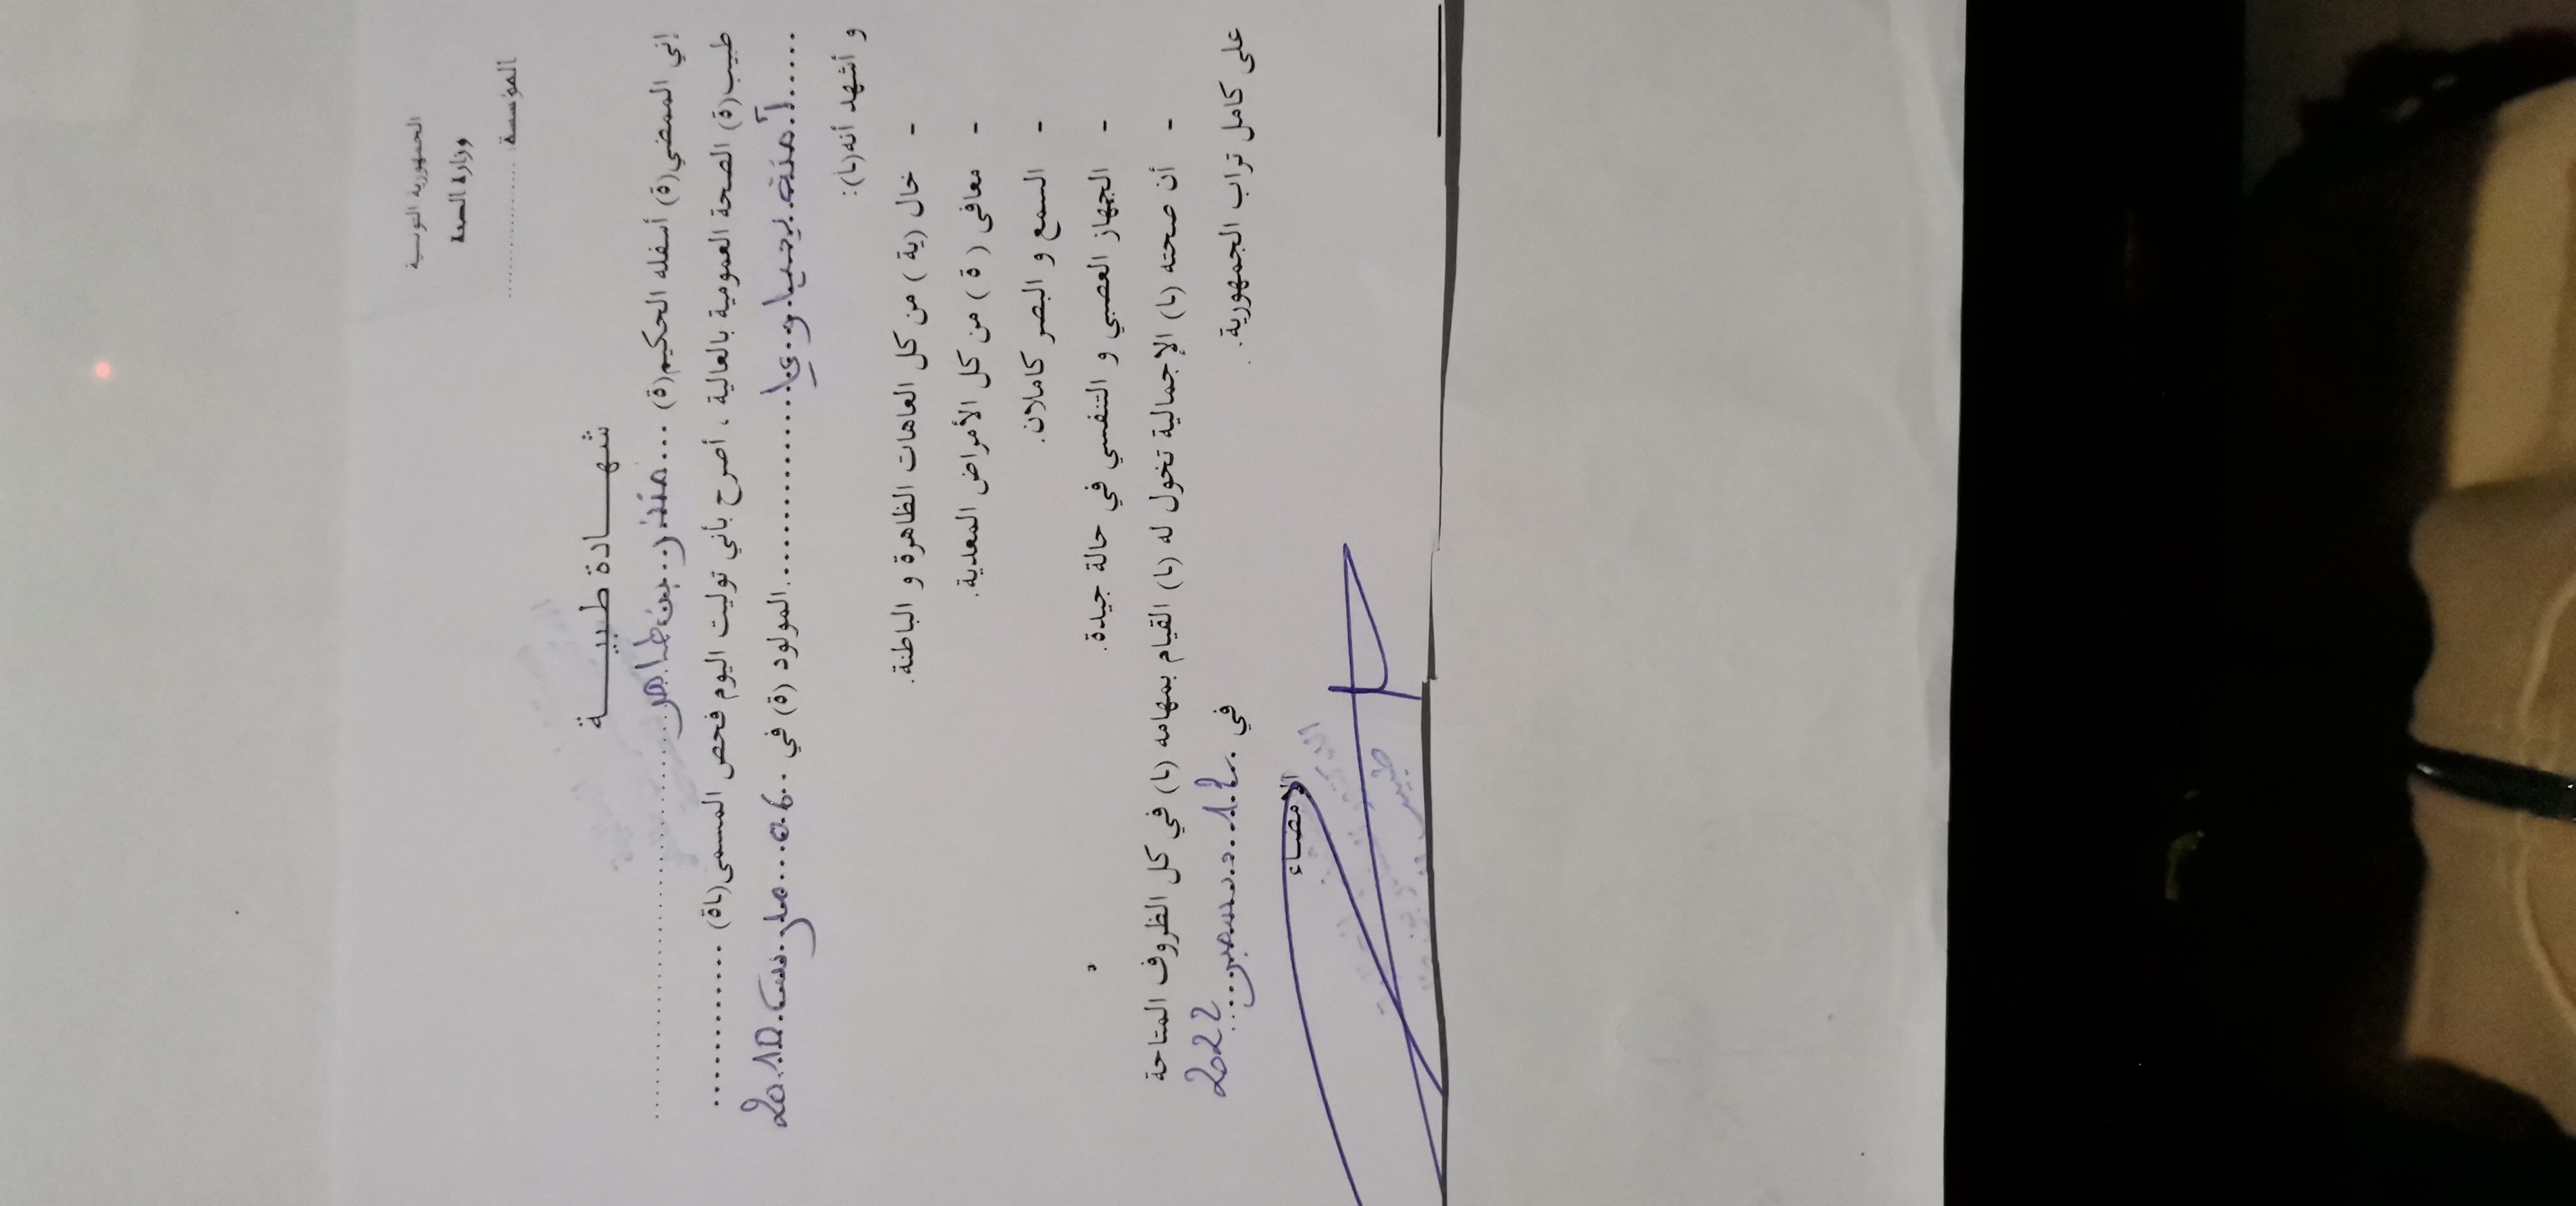 الجمهورية التونسية
وزارة الصحة
المؤسسة ..............
شهـــــادة طبيـــــة
إني الممضي(ة) أسفله الحكيم(ة) .... منذر بن طاهر ....................
طبيب(ة) الصحة العمومية بالعالية ، أصرح بأني توليت اليوم فحص المسمى(ـاة) ............
...... آمنة يحياوي ............ المولود (ة) في .. 06 ... مارس 2010
و أشهد أنه(ـا):
- خال (ية ) من كل العاهات الظاهرة و الباطنة.
- معافى ( ة ) من كل الأمراض المعدية.
- السمع و البصر كاملان.
- الجهاز العصبي و التنفسي في حالة جيدة.
- أن صحته (ـا) الإجمالية تخول له (ـا) القيام بمهامه (ـا) في كل الظروف المتاحة
على كامل تراب الجمهورية.
في .. 12 ... 2022
الإمضاء